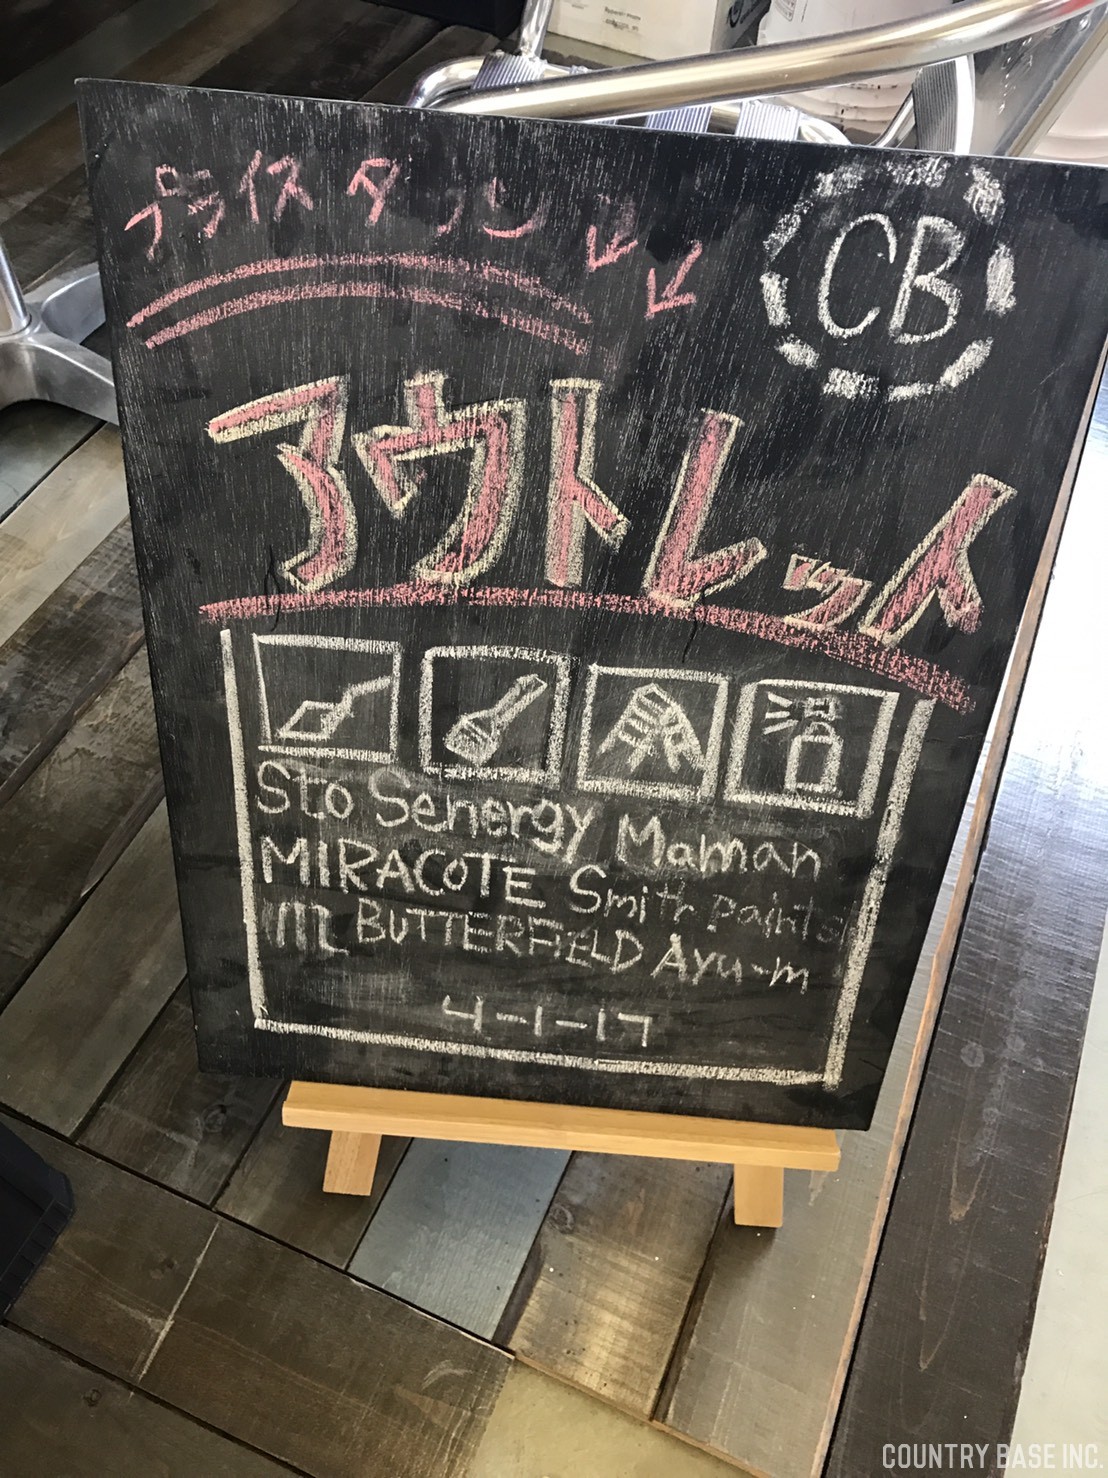 プライスダウン
CB
アウトレット
Sto Senergy Maman
MIRACOTE Smith paints
BUTTERFIELD Ayu-m
4-1-17
COUNTRY BASE INC.